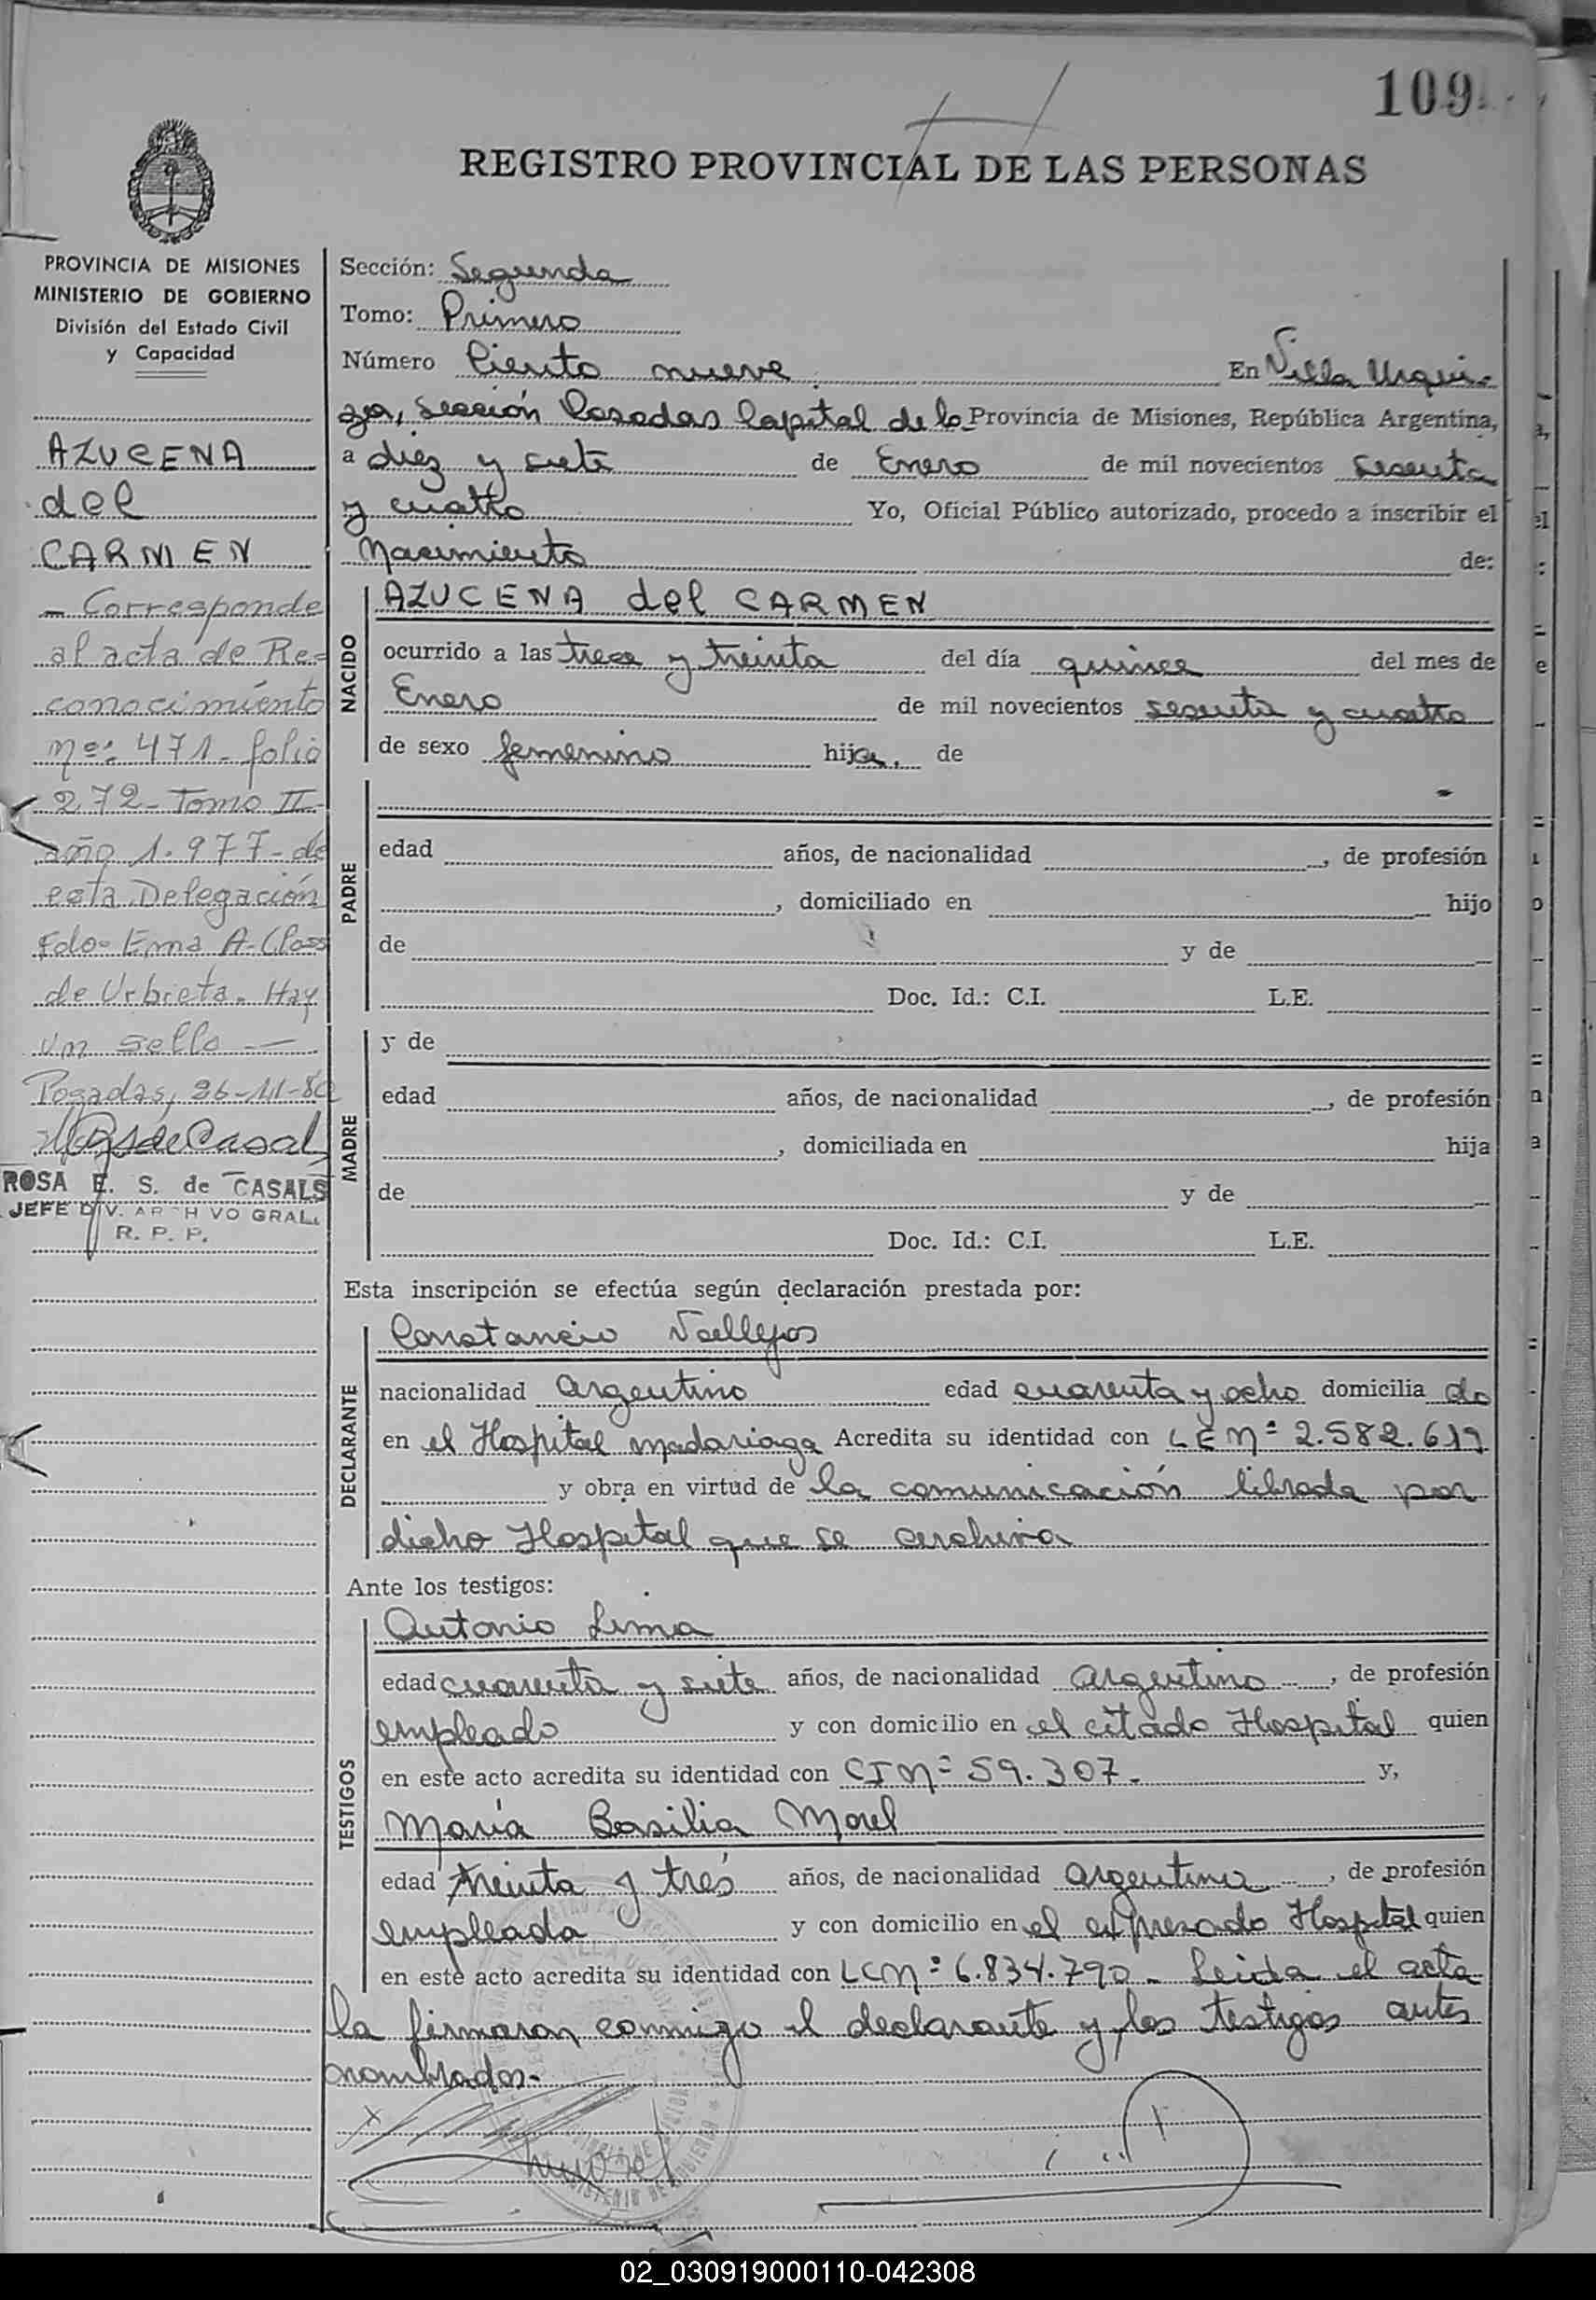 109
REGISTRO PROVINCIAL DE LAS PERSONAS
PROVINCIA DE MISIONES
MINISTERIO DE GOBIERNO
División del Estado Civil
y Capacidad
AZUCENA
del
CARMEN
- Corresponde
al acta de Re-
conocimiento
nº: 471- folio
272- Tomo II-
año 1.977- de
esta Delegación
Fdo- Ema A. Class
de Urbieta. Hay
un sello -
Posadas, 26-11-80
ROSA E. S. de CASALS
JEFE DIV. ARCHIVO GRAL.
R. P. P.
Sección: Segunda
Tomo: Primero
Número Ciento nueve En Villa Urqui-
za, Sección Posadas Capital de la Provincia de Misiones, República Argentina,
a diez y siete de Enero de mil novecientos sesenta
y cuatro Yo, Oficial Público autorizado, procedo a inscribir el
Nacimiento de:
NACIDO
AZUCENA del CARMEN
ocurrido a las trece y treinta del día quince del mes de
Enero de mil novecientos sesenta y cuatro
de sexo femenino hija, de
PADRE
edad años, de nacionalidad , de profesión
, domiciliado en hijo
de y de
Doc. Id.: C.I. L.E.
MADRE
y de
edad años, de nacionalidad , de profesión
, domiciliada en hija
de y de
Doc. Id.: C.I. L.E.
Esta inscripción se efectúa según declaración prestada por:
DECLARANTE
Constancio Vallejos
nacionalidad argentino edad cuarenta y ocho domicilia do
en el Hospital Madariaga Acredita su identidad con LE Nº 2.582.619
y obra en virtud de la comunicación librada por
dicho Hospital que se archiva
Ante los testigos:
TESTIGOS
Antonio Lima
edad cuarenta y siete años, de nacionalidad argentino , de profesión
empleado y con domicilio en el citado Hospital quien
en este acto acredita su identidad con CI Nº 59.307- y,
María Basilia Morel
edad treinta y tres años, de nacionalidad argentina , de profesión
empleada y con domicilio en el expresado Hospital quien
en este acto acredita su identidad con LC Nº 6.834.790- Leida el acta
la firmaron conmigo el declarante y los testigos antes
nombrados-
02_030919000110-042308